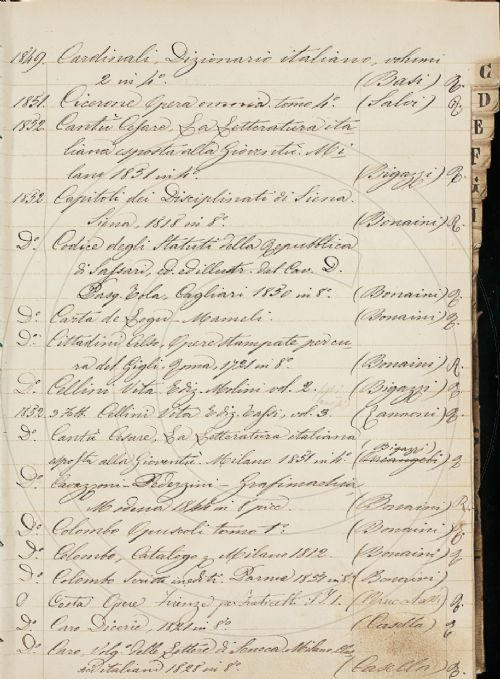 1849. Cardinali, Dizionario italiano, volumi
2 in 4º. (Basi) R.
1851. Cicerone Opera omnia tomo 4º. (Salvi) R.
1852. Cantù Cesare, La Letteratura ita
liana esposta alla Gioventù. Mi
lano 1851 in 4º. (Bigazzi) R.
1852 Capitoli dei Disciplinati di Siena.
Siena, 1818 in 8º. (Bonaini) R.
Dº. Codice degli Statuti della Repubblica
di Sassari, ed. ed illustr. dal Cav. D.
Pasq. Tola, Cagliari 1850 in 8º. (Bonaini) R.
Dº. Carta de Logu - Mameli. (Bonaini) R.
Dº. Cittadini Celso, Opere stampate per cu
ra del Gigli. Roma, 1721 in 8º. (Bonaini) R.
Dº. Cellini Vita Ediz. Molini vol. 2. (Bigazzi) R.
1852. Cellini Vita Ediz. Tassi, vol. 3. (Vannoni) R.
Dº. Cantù Cesare, La Letteratura italiana (Bigazzi)
esposta alla Gioventù. Milano 1851 in 4º. R
Dº. Grafimachia,
Modena 1844 in 8 picc. (Bonaini) R.
Dº. Colombo Opuscoli tomo 1º. (Bonaini) R
Dº. Colombo, Catalogo, Milano 1812. (Bonaini) R
Dº. Colombo Scritti inediti. Parma 1837 in 8º (Bonaini)
Costa Opere Firenze per Fraticelli R.
Dº. Caro Dicerie 1821 in 8º (Casella) R
Dº. Caro, Volgº. delle Lettere di Seneca Milano
italiani 1828 in 8º. (Casella) R.
C
D
E
F
G
I